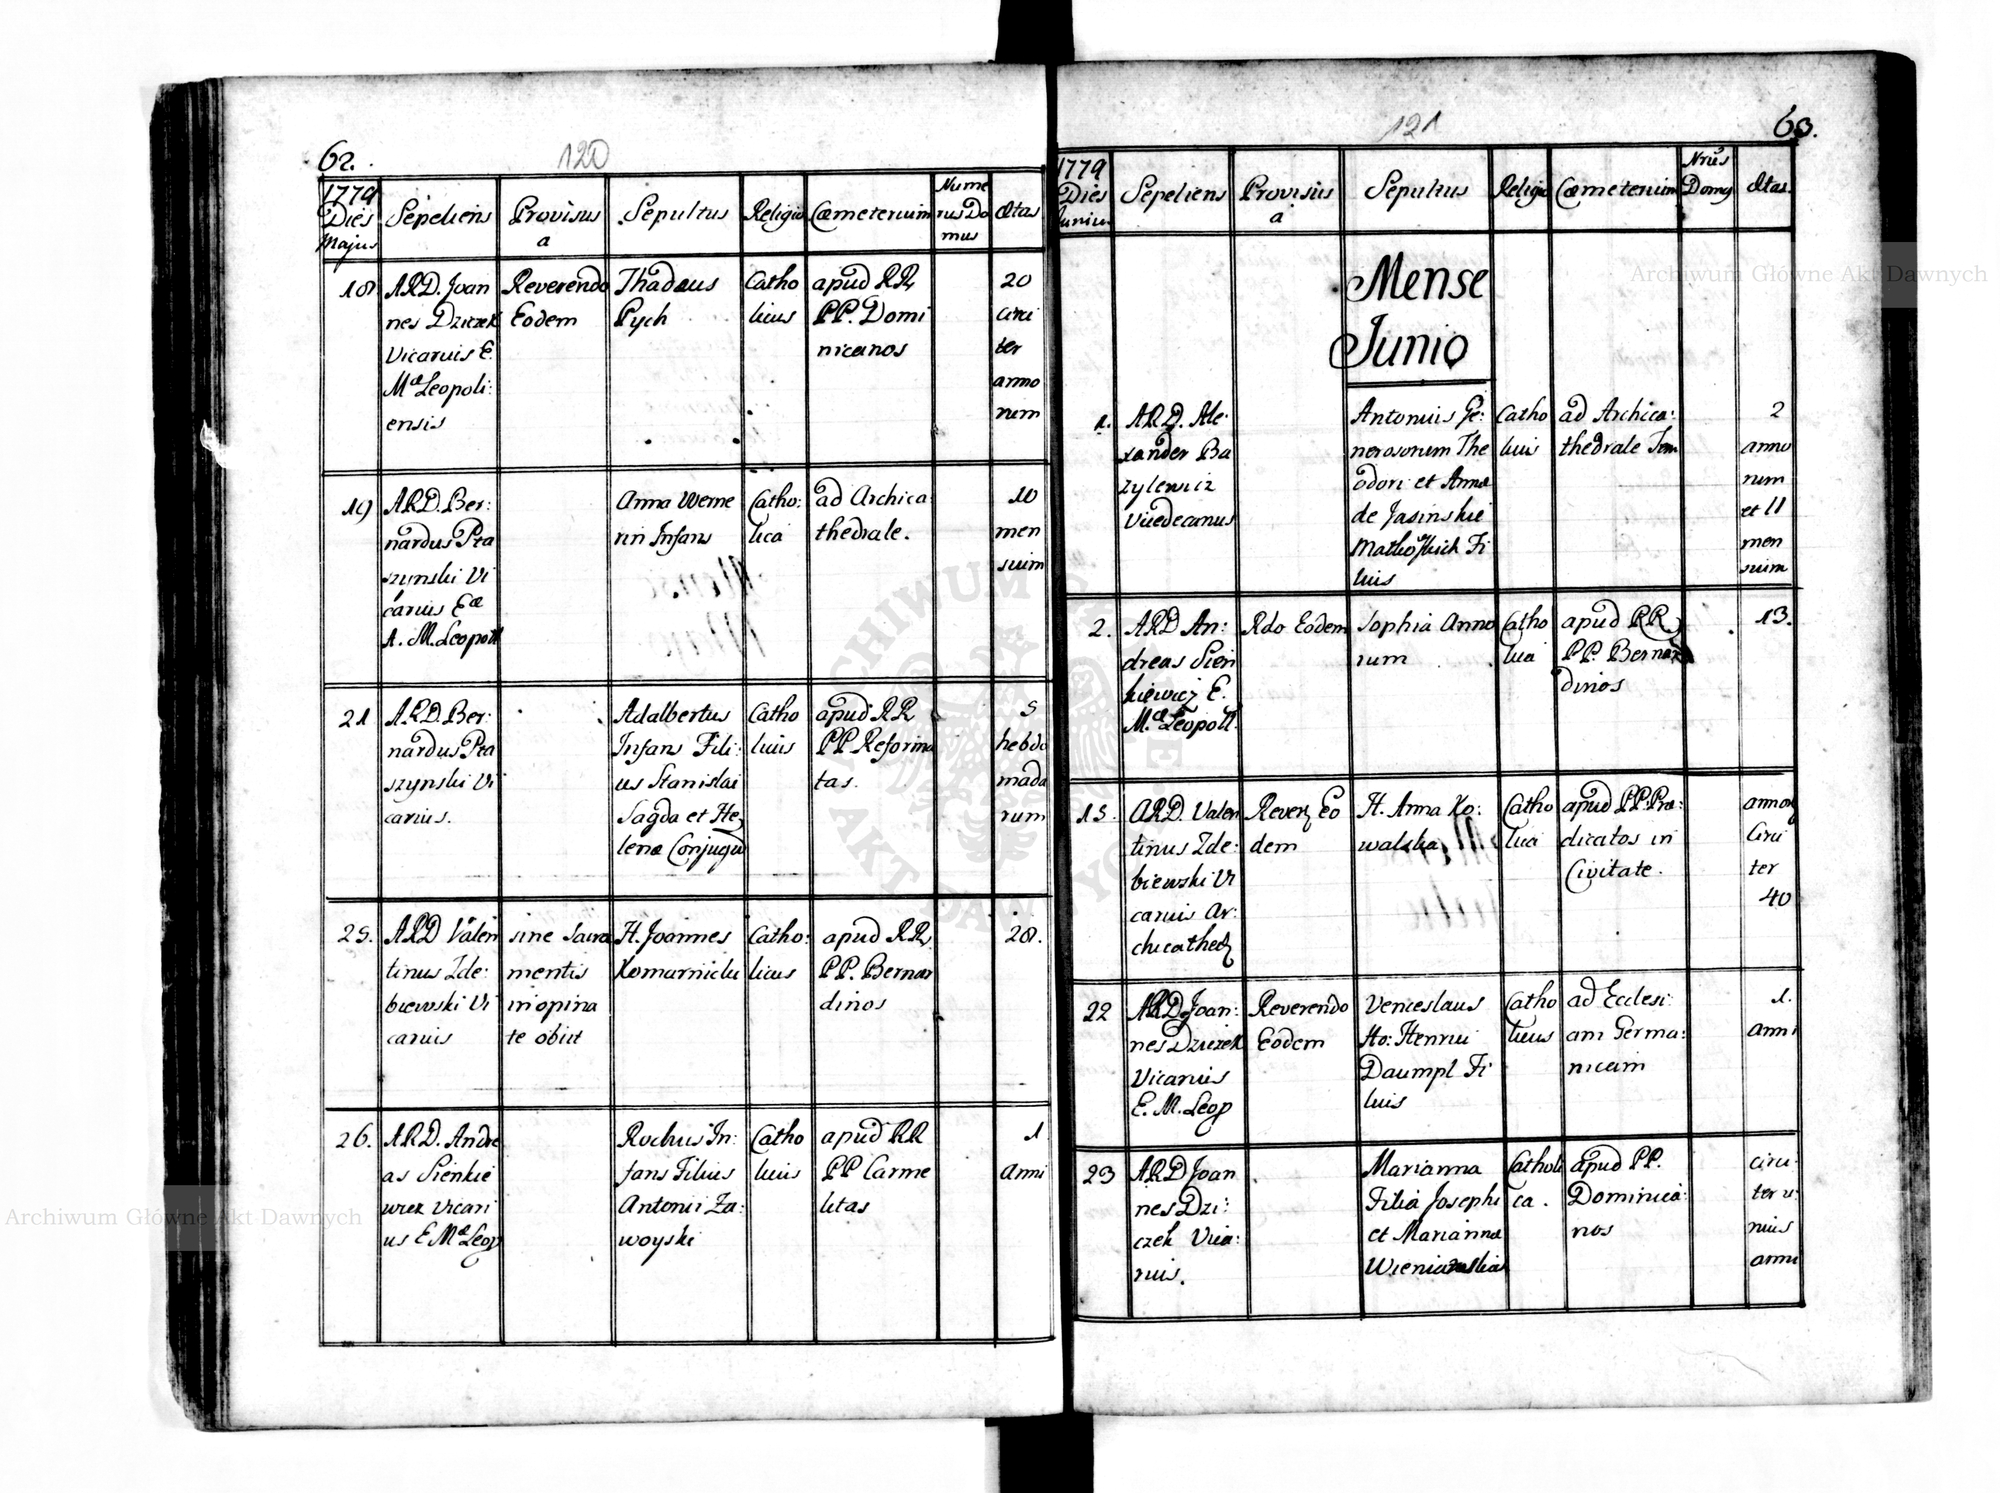 62.
120
1779
Dies
Majus
Sepeliens
Provisus
a
Sepultus
Religio
Cœmeterium
Nume
rus Do
mus
Ætas
18
ARD. Joan
nes Dziczek
Vicarius E.
Mæ Leopoli:
ensis
Reverendo
Eodem
Thadæus
Pych
Catho
licus
apud RR
PP. Domi
nicanos
20
circi
ter
anno
rum
19
ARD. Ber:
nardus Pta
szynski Vi
carius Eæ
A. M. Leopoll
Anna Werne
rin Infans
Catho:
lica
ad Archica
thedrale.
10
men
sium
21
ARD. Ber:
nardus Pta
szynski Vi
carius.
Adalbertus
Infans Fili:
us Stanislai
Sagda et He
lenæ Conjugu
Catho
licus
apud RR
PP Reforma
tas.
5
hebdo
mada
rum
25.
ARD Valen
tinus Zde:
biewski Vi
carius
sine Sacra
mentis
inopina
te obiit
H. Joannes
Komarnicki
Catho:
licus
apud RR.
PP. Bernar
dinos
28.
26.
ARD. Andre
as Sienkie
wicz Vicari
us E Mæ Leop
Rochus In:
fans Filius
Antonii Za:
woyski
Catho
licus
apud RR
PP Carme
litas
1
anni
121
63.
1779
Dies
Junius
Sepeliens
Provisus
a
Sepultus
Religio
Cœmeterium
Nrus
Domg
Ætas.
Mense
Junio
1.
ARD. Ale:
xander Ba
zylewicz
Vicedecanus
Antonius Ge:
nerosorum The
odori et Annæ
de Jasinskie
Filius
Catho
licus
ad Archica:
thedrale Tem
2
anno
rum
et 11
men
sium
2.
ARD An:
dreas Sien
kiewicz E.
Mæ Leopoll.
Rdo Eodem
Sophia Anno
rum
Catho
lica
apud RR
PP. Bernar
dinos
13.
15.
ARD. Valen
tinus Zde:
biewski Vi
carius Ar:
chicathed
Rever Eo
dem
H. Anna Ko:
walska
Catho
lica
apud PP. Præ:
dicatos in
Civitate.
annor
Circi
ter
40
22
ARD Joan:
nes Dziczek
Vicarius
E. M. Leop
Reverendo
Eodem
Venceslaus
Ho: Henrici
Daumpl Fi
lius
Catho
licus
ad Ecclesi
am Germa:
nicam
1.
anni
23
ARD Joan
nes Dzi:
czek Vica:
rius.
Marianna
Filia Josephi
et Marianna
Catholi
ca.
apud PP.
Dominica:
nos
circi
ter u:
nius
anni
Archiwum Główne Akt Dawnych
Archiwum Główne Akt Dawnych